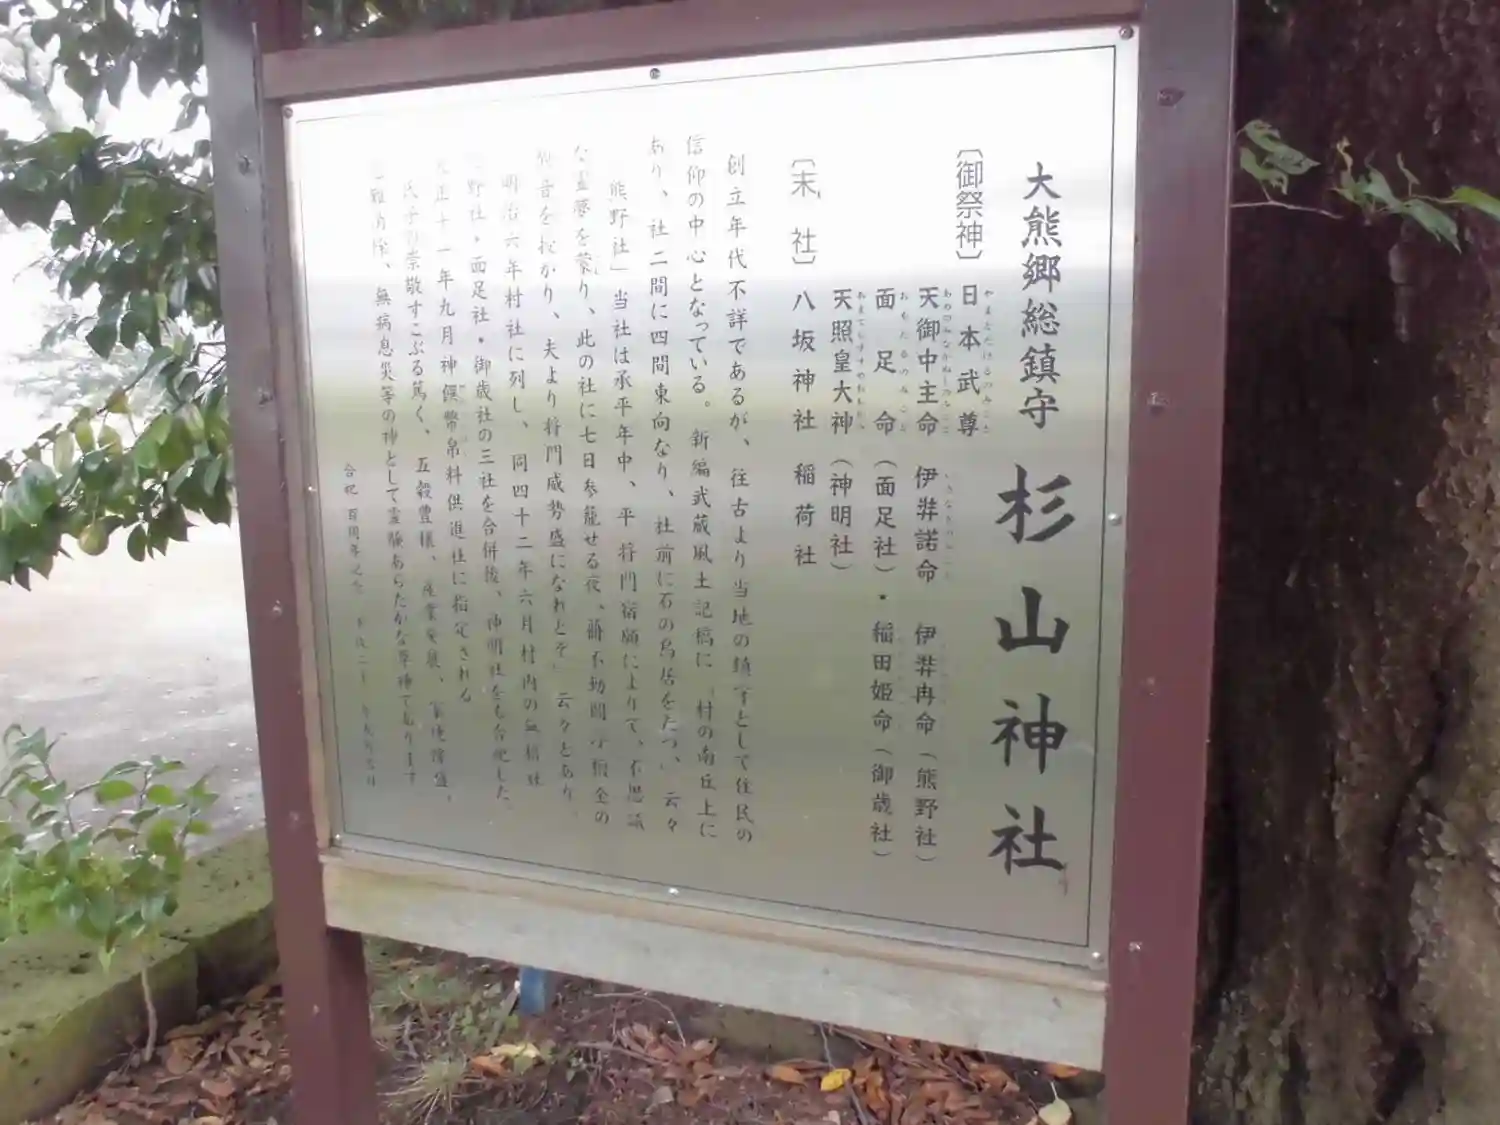 大熊郷総鎮守 杉山神社
〔御祭神〕 日本武尊
やまとたけるのみこと
天御中主命 伊弉諾命 伊弉冉命(熊野社)
あめのみなかぬしのみこと
面足命(面足社)・稲田姫命(御歳社)
おもたるのみこと
天照皇大神(神明社)
〔末社〕 八坂神社 稲荷社
創立年代不詳であるが、往古より当地の鎮守として住民の
信仰の中心となっている。新編武蔵風土記稿に「村の南丘上に
あり、社二間に四間東向なり、社前に石の鳥居をたつ、」云々
「熊野社」当社は承平年中、平将門宿願によりて、不思議
な霊夢を蒙り、此の社に七日参籠せる夜、
音を授かり、夫より将門威勢盛になれとぞ」云々とあり、
明治六年村社に列し、同四十二年六月村内の無格社
野社・面足社・御歳社の三社を合併後、神明社をも合祀した。
大正十一年九月神饌幣帛料供進社に指定される
氏子の崇敬すこぶる篤く、五穀豊穣、産業発展、
難消除、無病息災等の神として霊験あらたかな尊神であります
合祀百周年記念